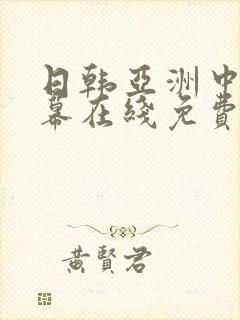 日韩亞洲中
幕在綫免費
黃賢君